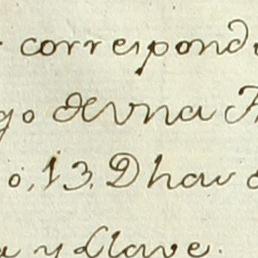 correspond
go de vna A
o, 13. Dhav
a y Llave.